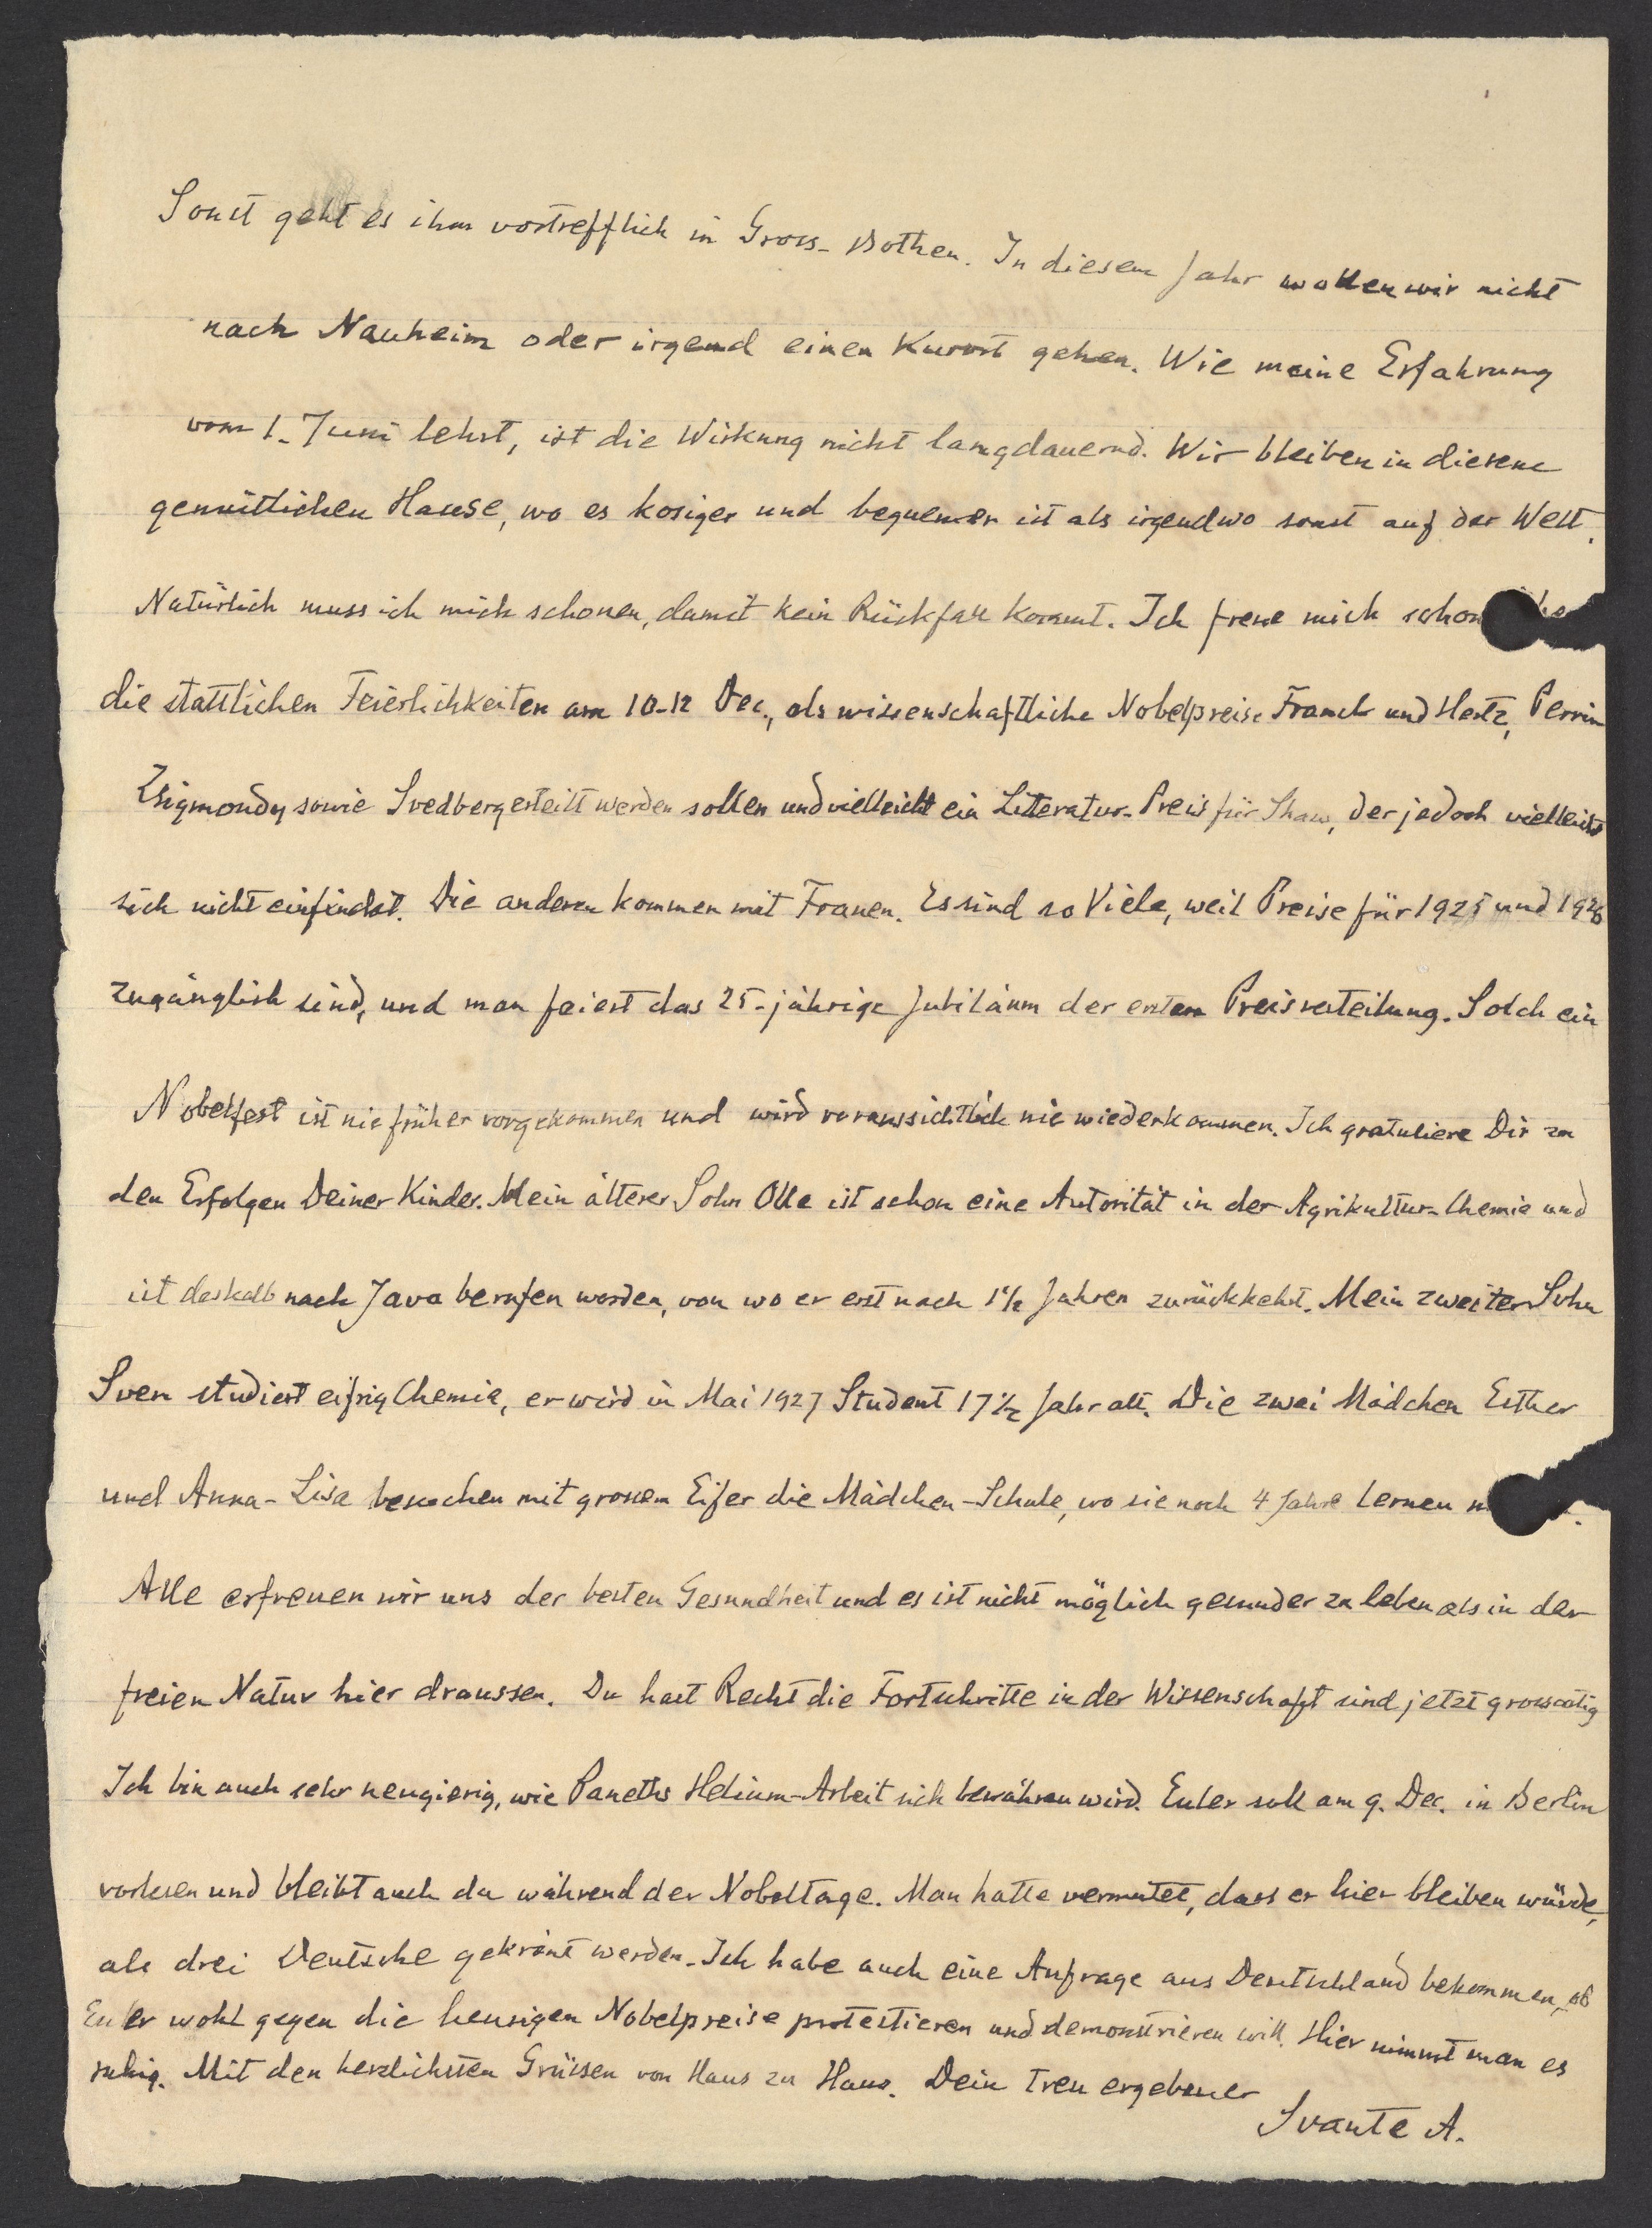 Sonst geht es ihm vortrefflich in Gross-Bothen. In diesem Jahr wollen wir nicht
nach Nauheim oder irgend einen Kurort gehen. Wie meine Erfahrung
vom 1. Juni lehrt, ist die Wirkung nicht langdauernd. Wir bleiben in diesem
gemütlichen Hause, wo es kosiger und bequemer ist als irgendwo sonst auf der Welt.
Natürlich muss ich mich schonen, damit kein Rückfall kommt. Ich freue mich schon
die stattlichen Feierlichkeiten am 10-12 Dec., als wissenschaftliche Nobelpreise Franck und Hertz, Perrin
Zsigmondy sowie Svedberg erteilt werden sollen und vielleicht ein Litteratur-Preis für Shaw, der jedoch vielleicht
sich nicht einfindet. Die anderen kommen mit Frauen. Es sind so Viele, weil Preise für 1925 und 1926
zugänglich sind, und man feiert das 25-jährige Jubiläum der ersten Preisverteilung. Solch ein
Nobelfest ist nie früher vorgekommen und wird voraussichtlich nie wiederkommen. Ich gratuliere Dir zu
den Erfolgen Deiner Kinder. Mein älterer Sohn Olle ist schon eine Autorität in der Agrikultur-Chemie und
ist deshalb nach Java berufen worden, von wo er erst nach 1½ Jahren zurückkehrt. Mein zweiter Sohn
Sven studiert eifrig Chemie, er wird in Mai 1927 Student 17½ Jahr alt. Die zwei Mädchen Esther
und Anna-Lisa besuchen mit grossem Eifer die Mädchen-Schule, wo sie noch 4 Jahre lernen
Alle erfreuen wir uns der besten Gesundheit und es ist nicht möglich gesunder zu leben als in der
freien Natur hier draussen. Du hast Recht die Fortschritte in der Wissenschaft sind jetzt grossartig
Ich bin auch sehr neugierig, wie Paneths Helium-Arbeit sich bewähren wird. Euler soll am 9. Dec. in Berlin
vorlesen und bleibt auch da während der Nobeltage. Man hatte vermutet, dass er hier bleiben würde,
als drei Deutsche gekrönt werden. Ich habe auch eine Anfrage aus Deutschland bekommen, ob
Euler wohl gegen die heurigen Nobelpreise protestieren und demonstrieren will. Hier nimmt man es
ruhig. Mit den herzlichsten Grüssen von Haus zu Haus. Dein treu ergebener
Svante A.